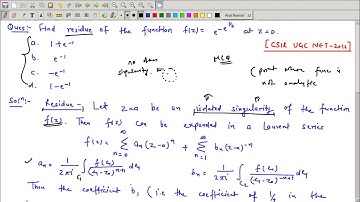 Ques:- Find residue of the function f(z) = e-e^{1/z} at z=0.
a. 1+e^{-1}
b. e^{-1}
c. -e^{-1}
d. 1-e^{-1}
no other singularity
MCQ
[CSIR UGC NET-2012]
(point where func is not analytic
Sol^n:- Residue - Let z=a be an isolated singularity of the function
f(z). Then f(z) can be expanded in a Laurent series
f(z) = \sum_{n=0}^{\infty} a_n(z-a)^n + \sum b_n(z-a)^{-n}
a_n = \frac{1}{2\pi i} \int_{C_1} \frac{f(z_1)}{(z_1-z_0)^{n+1}} dz_1 b_n = \frac{1}{2\pi i} \int_{C_2} \frac{f(z_1)}{(z_1-z_0)^{-n+1}} dz_1
Then the coefficient b_1 (i.e. the coefficient of 1/z in the